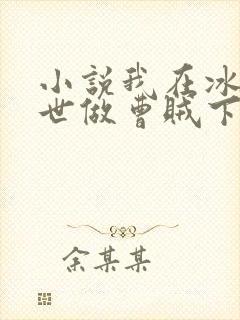 小説我在冰
世做曹賊下
余某某